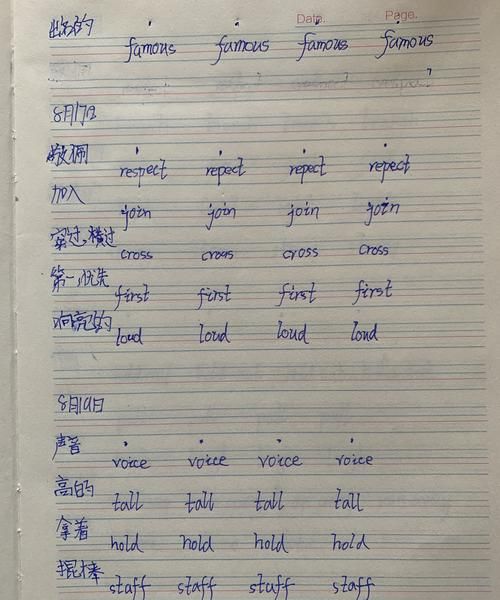 Date. Page.
出名的 famous famous famous famous
8月17日
敬佩 respect repect repect repect
加入 join join join join
穿过,横过 cross cross cross cross
第一,优先 first first first first
响亮的 loud loud loud loud
8月19日
声音 voice voice voice voice
高的 tall tall tall tall
拿着 hold hold hold hold
棍棒 staff staff staff staff